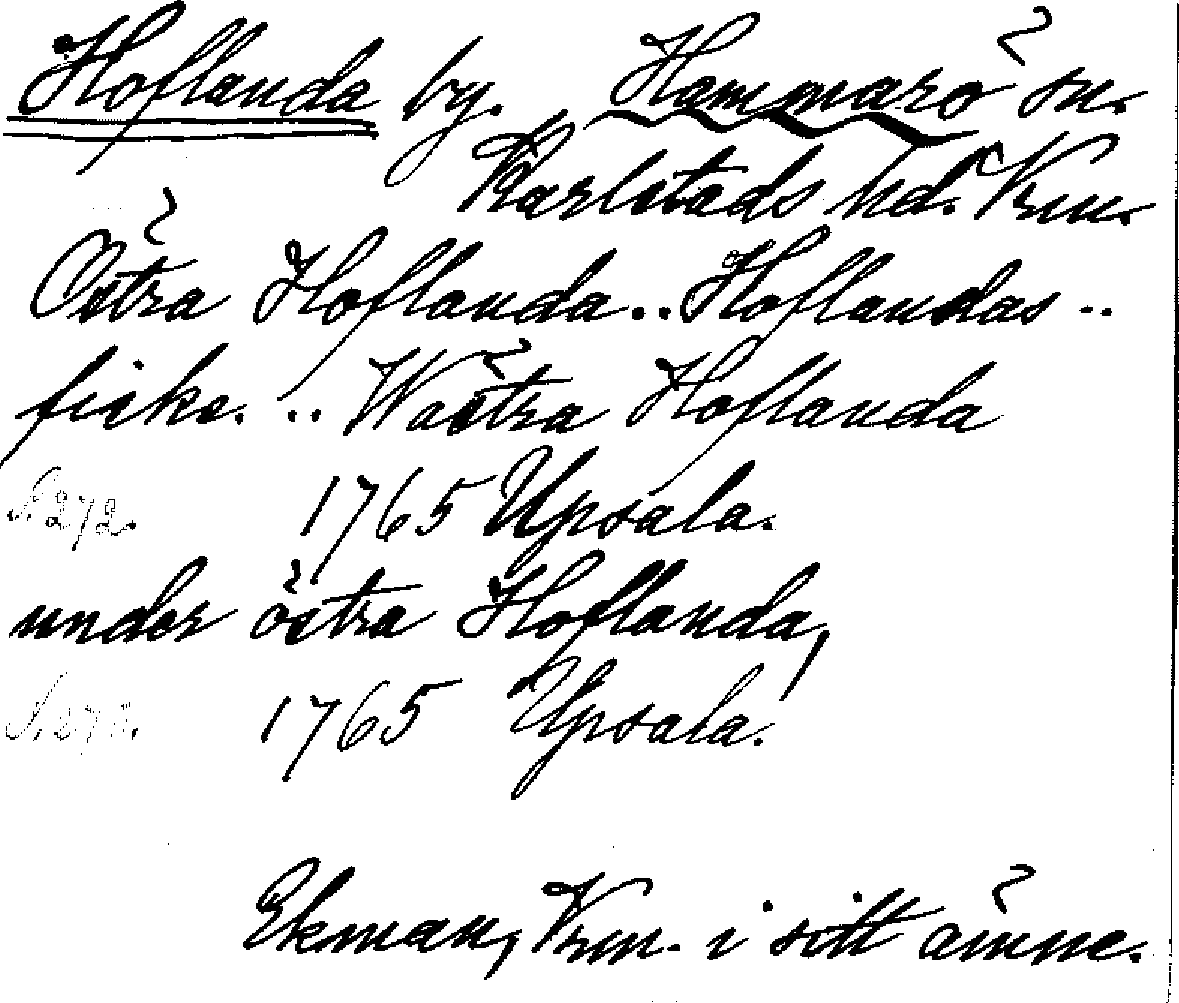 Hoflanda by. Hammarö sn.
Karlstads hd. Vrm.
Östra Hoflanda .. Hoflandas ..
fiske. .. Wästra Hoflanda
S. 272. 1765 Upsala.
under östra Hoflanda,
S. 272. 1765 Upsala.
Ekman, Vrm. i sitt ämne.